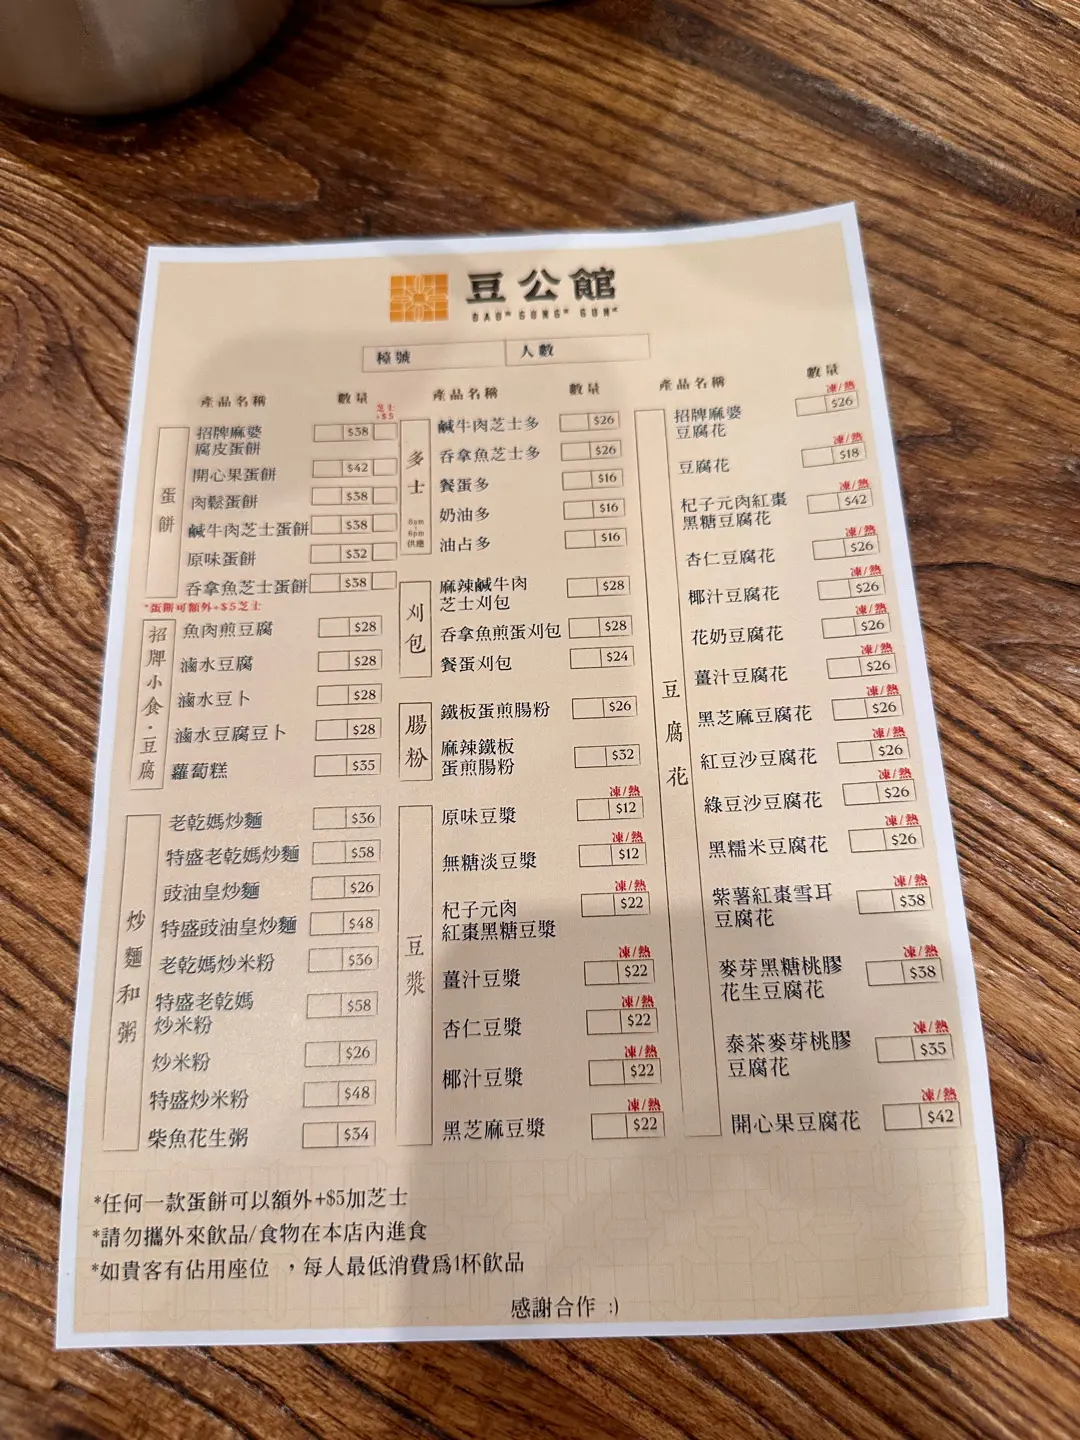 豆公館
DAO GUNG GUN
檯號
人數
產品名稱 數量 芝士
+$5
蛋餅
招牌麻婆
腐皮蛋餅 $38
開心果蛋餅 $42
肉鬆蛋餅 $38
鹹牛肉芝士蛋餅 $38
原味蛋餅 $32
吞拿魚芝士蛋餅 $38
*蛋餅可額外+$5芝士
招牌小食·豆腐
魚肉煎豆腐 $28
滷水豆腐 $28
滷水豆卜 $28
滷水豆腐豆卜 $28
蘿蔔糕 $35
炒麵和粥
老乾媽炒麵 $36
特盛老乾媽炒麵 $58
豉油皇炒麵 $26
特盛豉油皇炒麵 $48
老乾媽炒米粉 $36
特盛老乾媽
炒米粉 $58
炒米粉 $26
特盛炒米粉 $48
柴魚花生粥 $34
產品名稱 數量
多士
8am
-
6pm
供應
鹹牛肉芝士多 $26
吞拿魚芝士多 $26
餐蛋多 $16
奶油多 $16
油占多 $16
刈包
麻辣鹹牛肉
芝士刈包 $28
吞拿魚煎蛋刈包 $28
餐蛋刈包 $24
腸粉
鐵板蛋煎腸粉 $26
麻辣鐵板
蛋煎腸粉 $32
豆漿
凍/熱
原味豆漿 $12
凍/熱
無糖淡豆漿 $12
凍/熱
杞子元肉
紅棗黑糖豆漿 $22
凍/熱
薑汁豆漿 $22
凍/熱
杏仁豆漿 $22
凍/熱
椰汁豆漿 $22
凍/熱
黑芝麻豆漿 $22
產品名稱 數量
豆腐花
凍/熱
招牌麻婆
豆腐花 $26
凍/熱
豆腐花 $18
凍/熱
杞子元肉紅棗
黑糖豆腐花 $42
凍/熱
杏仁豆腐花 $26
凍/熱
椰汁豆腐花 $26
凍/熱
花奶豆腐花 $26
凍/熱
薑汁豆腐花 $26
凍/熱
黑芝麻豆腐花 $26
凍/熱
紅豆沙豆腐花 $26
凍/熱
綠豆沙豆腐花 $26
凍/熱
黑糯米豆腐花 $26
凍/熱
紫薯紅棗雪耳
豆腐花 $38
凍/熱
麥芽黑糖桃膠
花生豆腐花 $38
凍/熱
泰茶麥芽桃膠
豆腐花 $35
凍/熱
開心果豆腐花 $42
*任何一款蛋餅可以額外+$5加芝士
*請勿攜外來飲品/食物在本店內進食
*如貴客有佔用座位 ，每人最低消費爲1杯飲品
感謝合作 :)